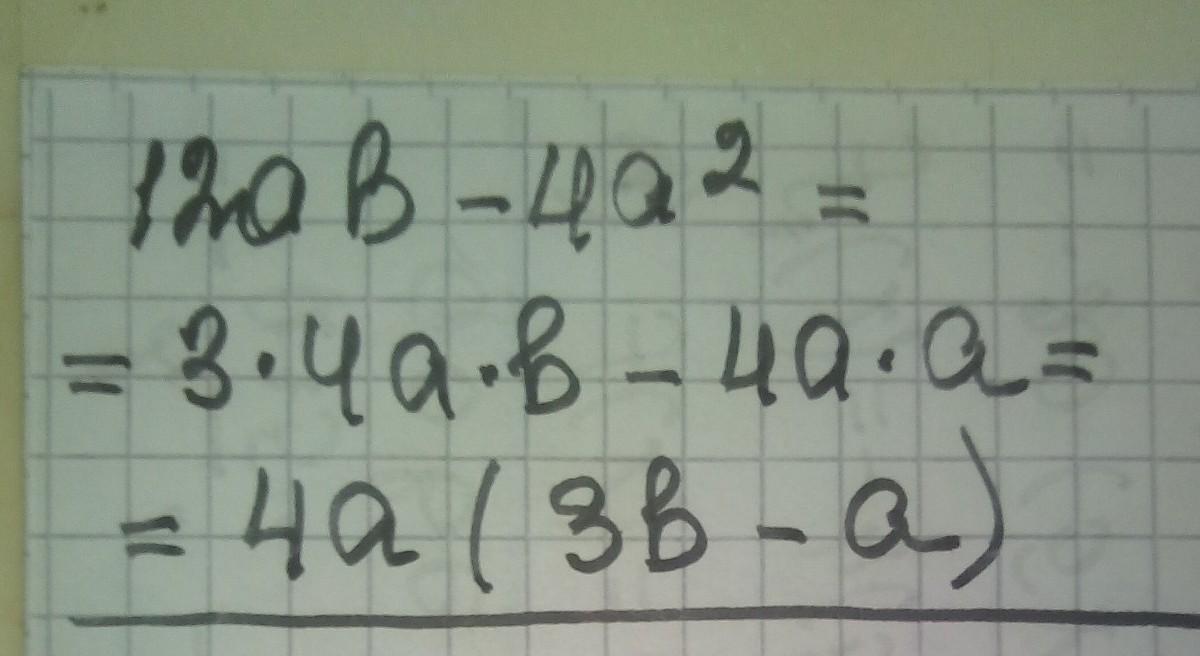 12ab - 4a² =
= 3·4a·b - 4a·a =
= 4a(3b - a)